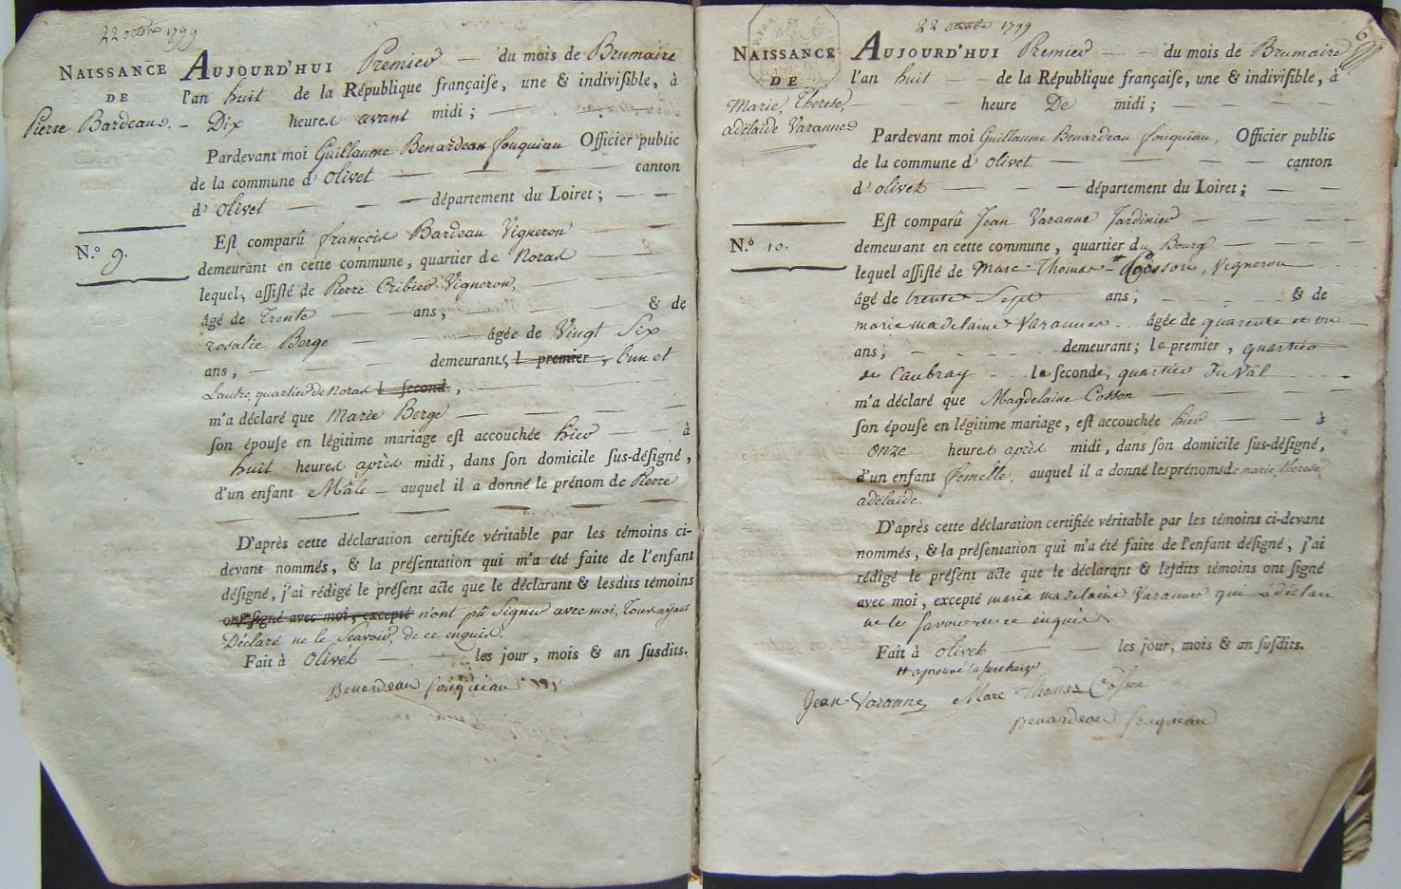 22 octobre 1799
NAISSANCE
DE
Pierre Bardeau.
N.º 9.
AUJOURD'HUI Premier du mois de Brumaire
l'an huit de la République françaiſe, une & indiviſible, à
Dix heures avant midi ;
Pardevant moi Guillaume Benardeau fouqueau Officier public
de la commune d' Olivet canton
d' Olivet département du Loiret ;
Eſt comparû françois Bardeau Vigneron
demeurant en cette commune, quartier de Noras
lequel, aſſiſté de Pierre Cribier Vigneron,
âgé de Trente ans ; & de
rosalie Berge âgée de Vingt Six
ans, demeurants, l premier, l'un et
L'autre, quartier de Noras l ſecond,
m'a déclaré que Marie Berge
ſon épouſe en légitime mariage eſt accouchée hier à
huit heures après midi, dans ſon domicile ſus-déſigné,
d'un enfant Mâle auquel il a donné le prénom de Pierre
D'après cette déclaration certifiée véritable par les témoins ci-
devant nommés, & la préſentation qui m'a été faite de l'enfant
déſigné, j'ai rédigé le préſent acte que le déclarant & leſdits témoins
ont ſigné avec moi, excepté n'ont pû Signer avec moi, Tous ayant
Déclaré ne le Scavoir, de ce enquis.
Fait à Olivet les jour, mois & an ſuſdits.
Benardeau fouqueau
22 octobre 1799
6
NAISSANCE
DE
Marie, Therese,
adelaide Varanne
N.º 10.
AUJOURD'HUI Premier du mois de Brumaire
l'an huit de la République françaiſe, une & indiviſible, à
heure De midi ;
Pardevant moi Guillaume Benardeau fouqueau, Officier public
de la commune d' Olivet canton
d' olivet département du Loiret ;
Eſt comparû Jean Varanne Jardinier
demeurant en cette commune, quartier du Bourg
lequel aſſiſté de Marc-Thomas Cosson, Vigneron
âgé de trente Sept ans ; & de
marie madelaine Varanne âgée de quarente et un
ans ; demeurant ; le premier, quartier
de Caubray la ſeconde, quartier Du Val
m'a déclaré que Magdelaine Cosson
ſon épouſe en légitime mariage, eſt accouchée hier à
onze heures après midi, dans ſon domicile ſus-déſigné,
d'un enfant femelle, auquel il a donné les prénoms de marie, therese
adelaide.
D'après cette déclaration certifiée véritable par les témoins ci-devant
nommés, & la préſentation qui m'a été faite de l'enfant déſigné, j'ai
rédigé le préſent acte que le déclarant & leſdits témoins ont ſigné
avec moi, excepté marie madelaine Varanne qui a déclaré
ne le ſavoir de ce enquis
Fait à Olivet les jour, mois & an ſuſdits.
approuvé la surcharge
Jean Varanne Marc Thomas Cosson
Benardeau fouqueau